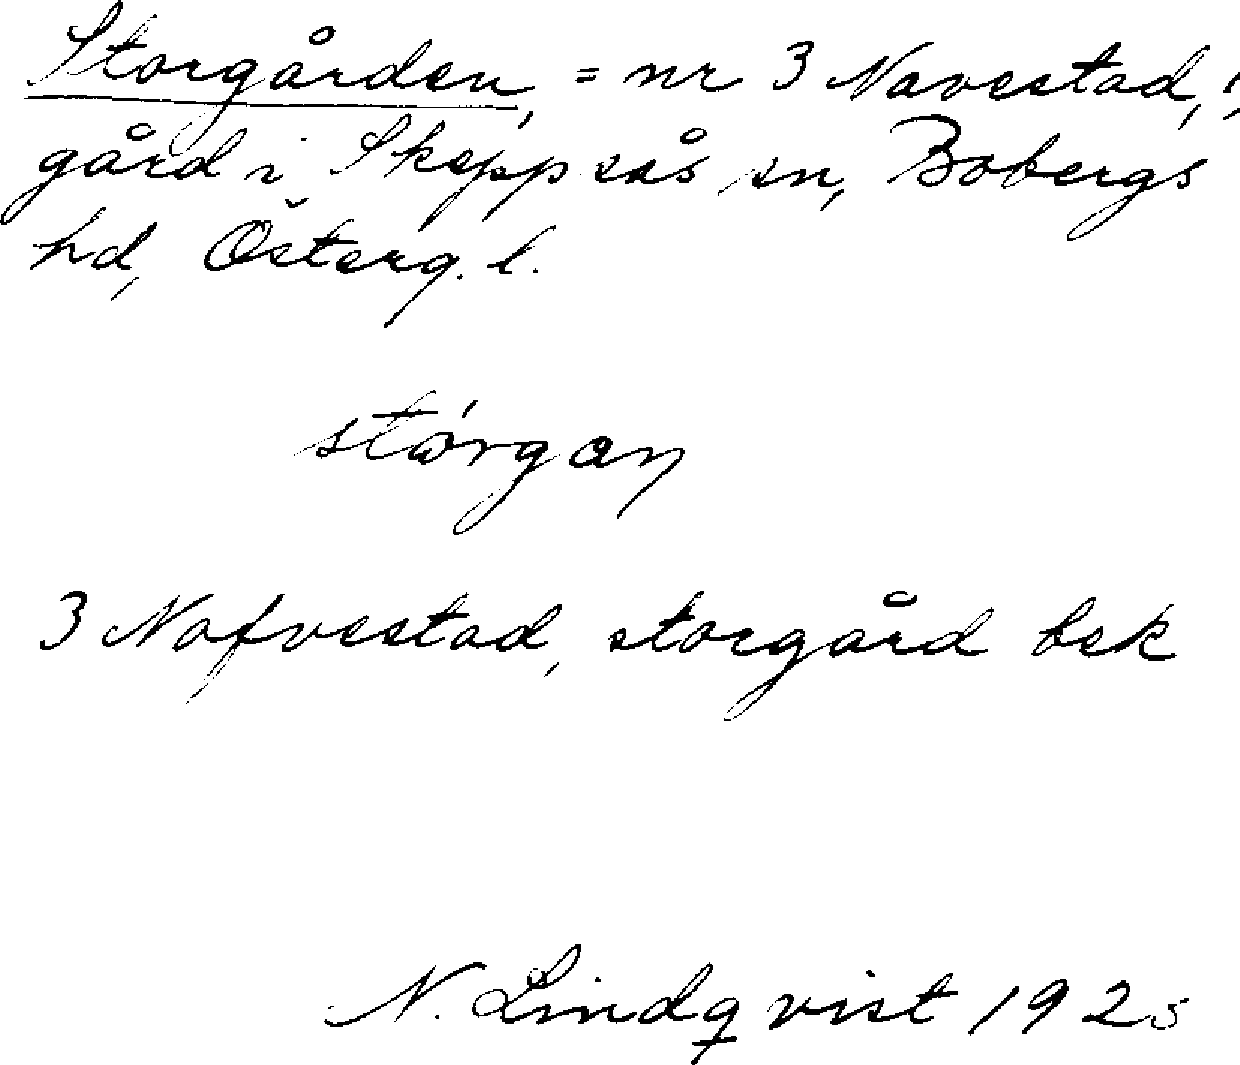 Storgården, = nr 3 Navestad,
gård i Skeppsås sn, Bobergs
hd, Österg. l.
3 Nafvestad, storgård bsk
N. Lindqvist 1925